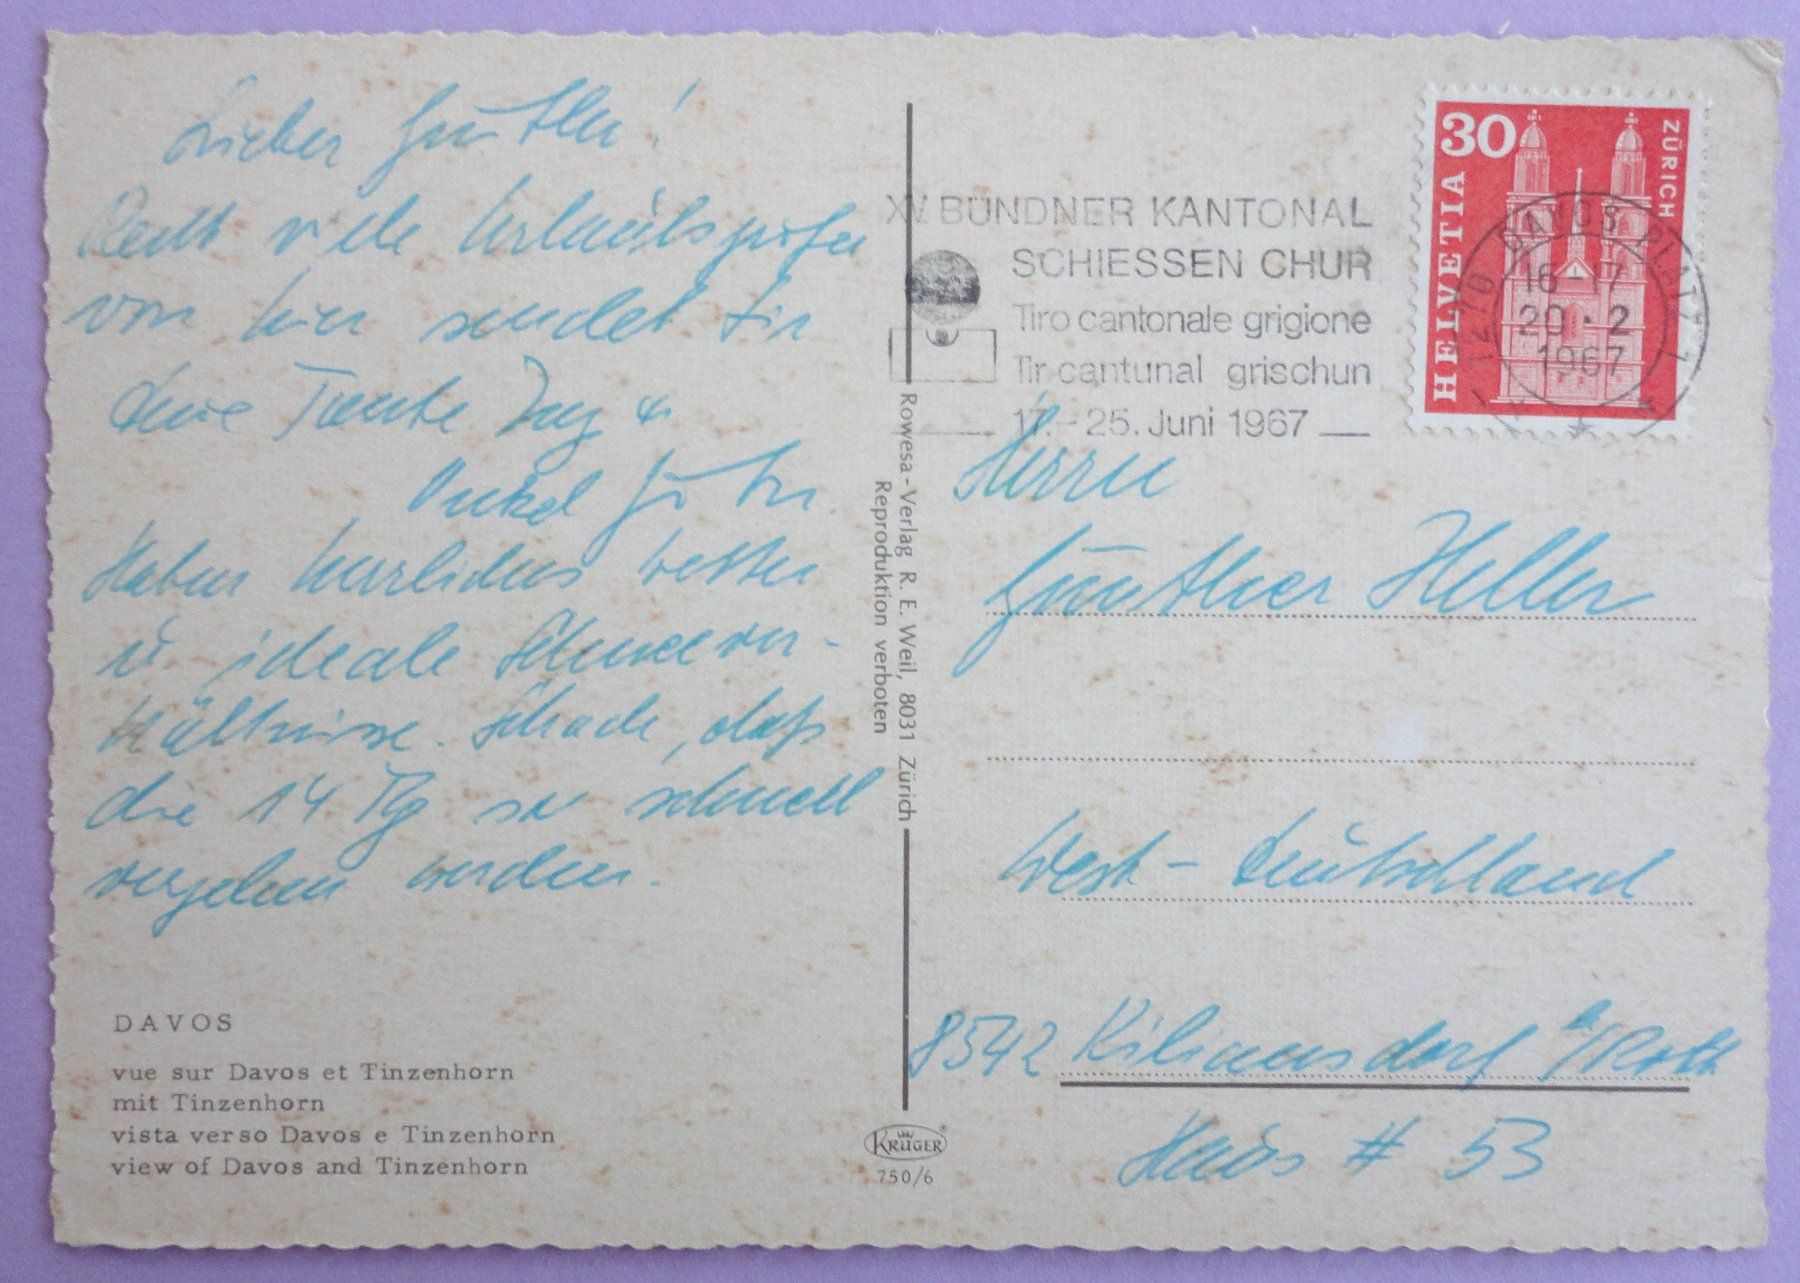 Lieber Günther!
Recht viele Urlaubsgrüße
von hier sendet Dir
Deine Tante Ing &
Onkel Günther.
Haben herrliches Wetter
u. ideale Schneever-
hältnisse. Schade, daß
die 14 Tg so schnell
vergehen werden.
DAVOS
vue sur Davos et Tinzenhorn
mit Tinzenhorn
vista verso Davos e Tinzenhorn
view of Davos and Tinzenhorn
Rowesa-Verlag R. E. Weil, 8031 Zürich
Reproduktion verboten
KRÜGER®
750/6
XV. BÜNDNER KANTONAL
SCHIESSEN CHUR
Tiro cantonale grigione
Tir cantunal grischun
17.-25. Juni 1967
30
HELVETIA
ZÜRICH
7270 DAVOS PLATZ 1
16-17
20.2
1967
Herrn
Günther Heller
West-Deutschland
8542 Kiliansdorf a/Roth
Haus # 53